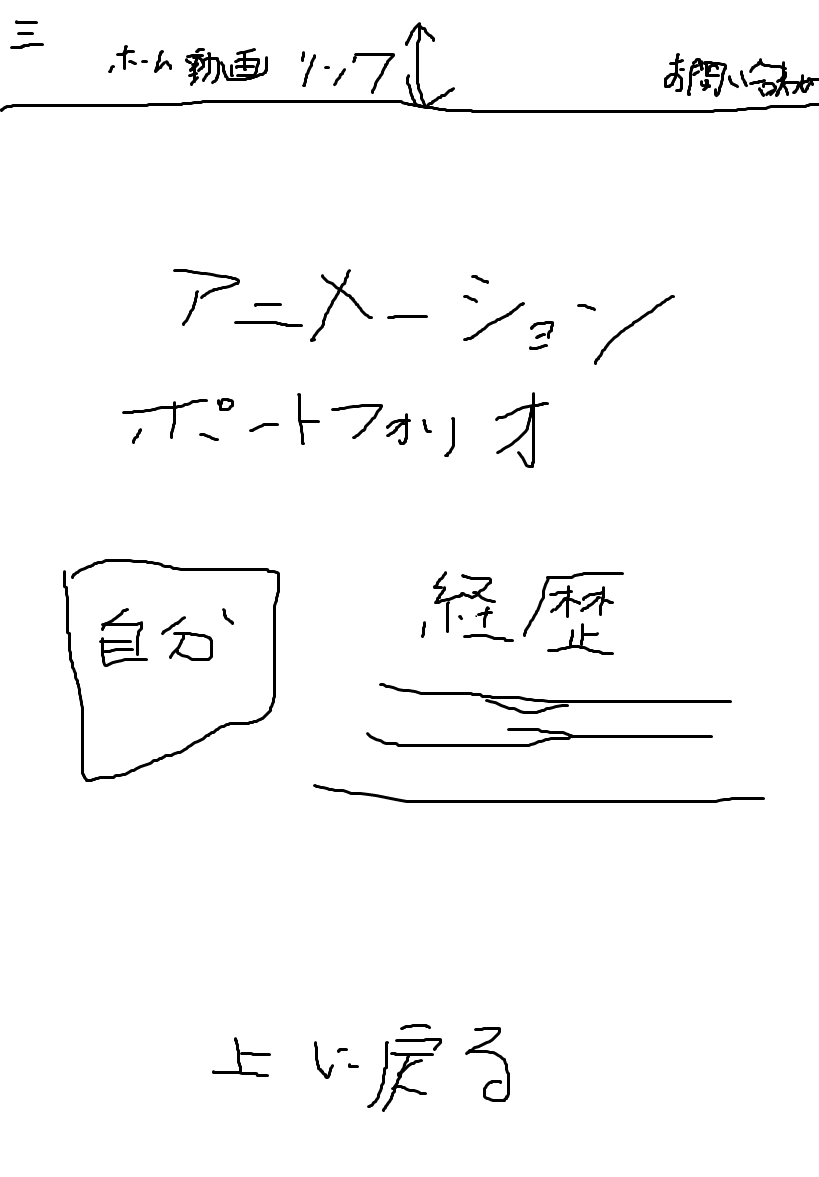 三 ホーム 動画 リンク お問い合わせ
アニメーション
ポートフォリオ
自分 経歴
上に戻る